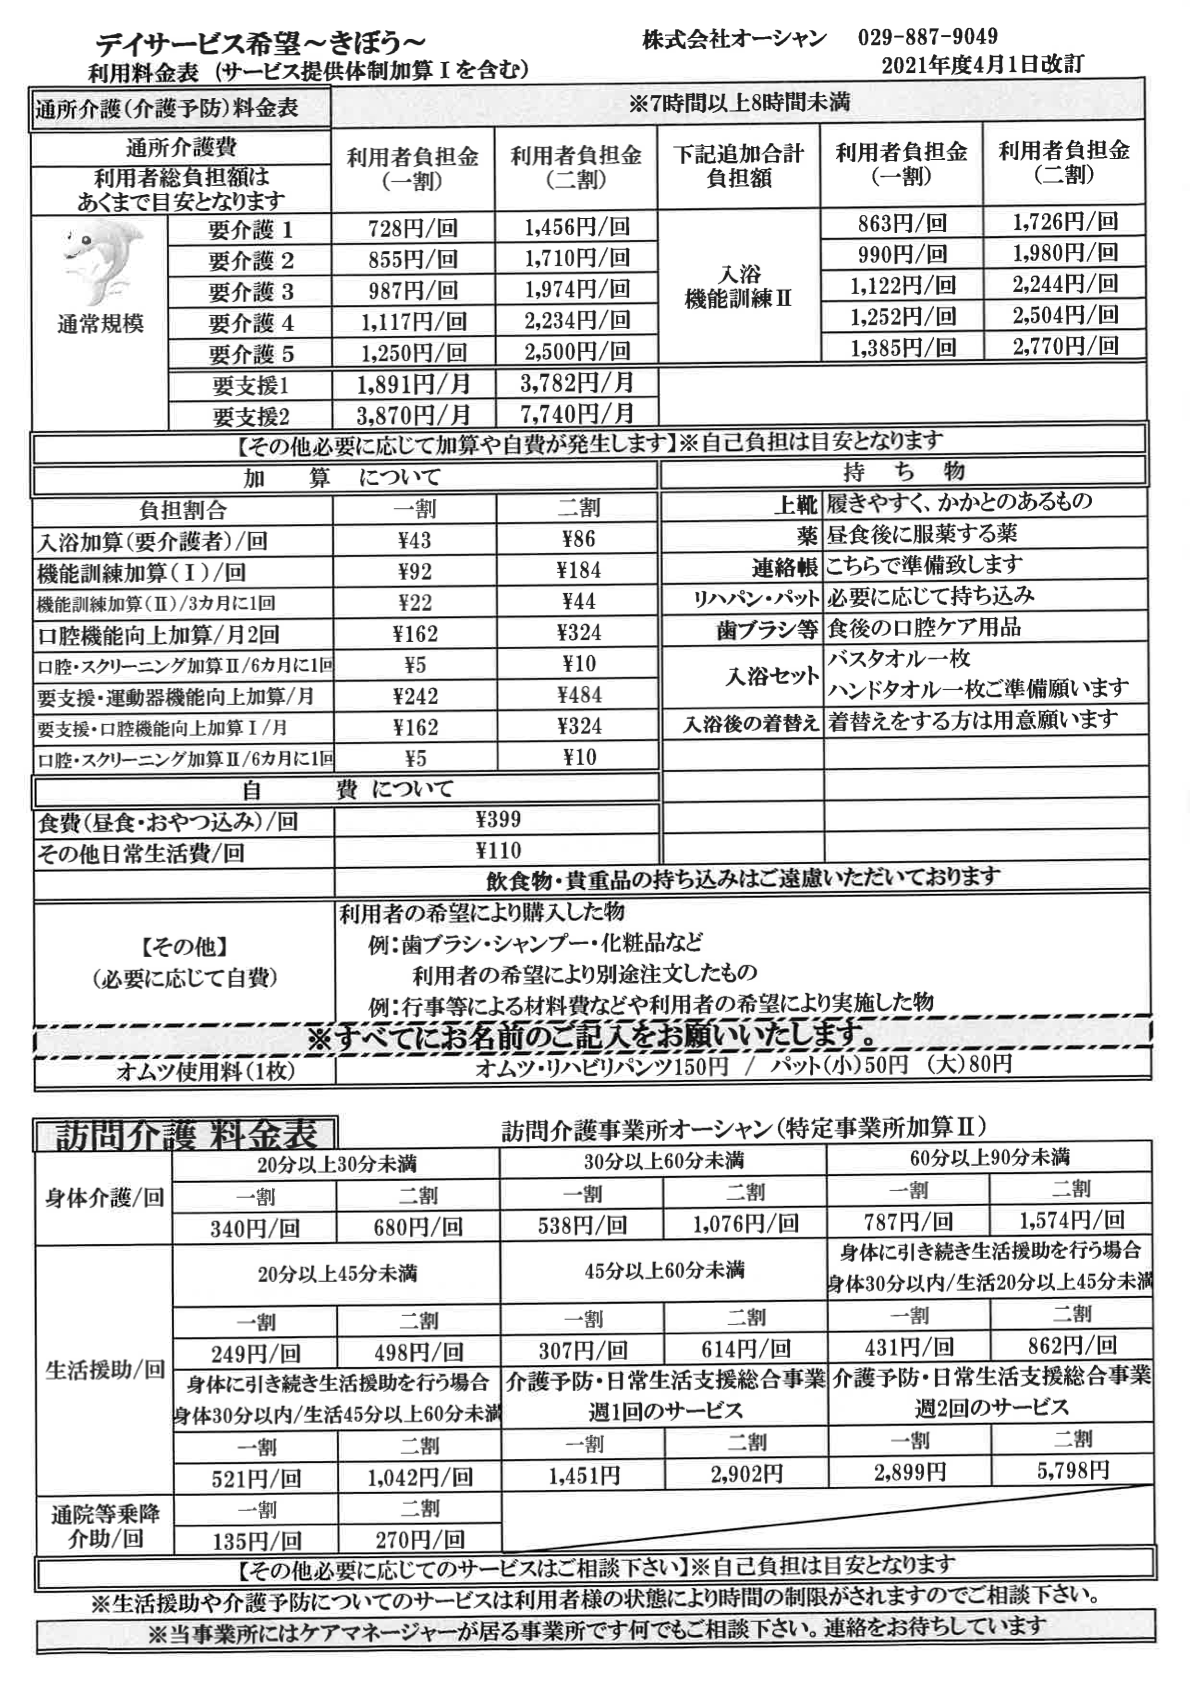 デイサービス希望～きぼう～
株式会社オーシャン 029-887-9049
利用料金表 (サービス提供体制加算Ⅰを含む)
2021年度4月1日改訂
通所介護(介護予防)料金表
※7時間以上8時間未満
通所介護費
利用者総負担額は
あくまで目安となります
利用者負担金
(一割)
利用者負担金
(二割)
下記追加合計
負担額
利用者負担金
(一割)
利用者負担金
(二割)
通常規模
入浴
機能訓練Ⅱ
要介護 1 728円/回 1,456円/回 863円/回 1,726円/回
要介護 2 855円/回 1,710円/回 990円/回 1,980円/回
要介護 3 987円/回 1,974円/回 1,122円/回 2,244円/回
要介護 4 1,117円/回 2,234円/回 1,252円/回 2,504円/回
要介護 5 1,250円/回 2,500円/回 1,385円/回 2,770円/回
要支援1 1,891円/月 3,782円/月
要支援2 3,870円/月 7,740円/月
【その他必要に応じて加算や自費が発生します】※自己負担は目安となります
加 算 について
負担割合 一割 二割
入浴加算(要介護者)/回 ¥43 ¥86
機能訓練加算(Ⅰ)/回 ¥92 ¥184
機能訓練加算(Ⅱ)/3カ月に1回 ¥22 ¥44
口腔機能向上加算/月2回 ¥162 ¥324
口腔・スクリーニング加算Ⅱ/6カ月に1回 ¥5 ¥10
要支援・運動器機能向上加算/月 ¥242 ¥484
要支援・口腔機能向上加算Ⅰ/月 ¥162 ¥324
口腔・スクリーニング加算Ⅱ/6カ月に1回 ¥5 ¥10
自 費 について
食費(昼食・おやつ込み)/回 ¥399
その他日常生活費/回 ¥110
持 ち 物
上靴 履きやすく、かかとのあるもの
薬 昼食後に服薬する薬
連絡帳 こちらで準備致します
リハパン・パット 必要に応じて持ち込み
歯ブラシ等 食後の口腔ケア用品
入浴セット バスタオル一枚
ハンドタオル一枚ご準備願います
入浴後の着替え 着替えをする方は用意願います
飲食物・貴重品の持ち込みはご遠慮いただいております
【その他】
(必要に応じて自費)
利用者の希望により購入した物
例:歯ブラシ・シャンプー・化粧品など
利用者の希望により別途注文したもの
例:行事等による材料費などや利用者の希望により実施した物
※すべてにお名前のご記入をお願いいたします。
オムツ使用料(1枚) オムツ・リハビリパンツ150円 / パット(小)50円 (大)80円
訪問介護 料金表
訪問介護事業所オーシャン(特定事業所加算Ⅱ)
身体介護/回
20分以上30分未満 30分以上60分未満 60分以上90分未満
一割 二割 一割 二割 一割 二割
340円/回 680円/回 538円/回 1,076円/回 787円/回 1,574円/回
生活援助/回
20分以上45分未満
45分以上60分未満
身体に引き続き生活援助を行う場合
身体30分以内/生活20分以上45分未満
一割 二割 一割 二割 一割 二割
249円/回 498円/回 307円/回 614円/回 431円/回 862円/回
身体に引き続き生活援助を行う場合
身体30分以内/生活45分以上60分未満
介護予防・日常生活支援総合事業
週1回のサービス
介護予防・日常生活支援総合事業
週2回のサービス
一割 二割 一割 二割 一割 二割
521円/回 1,042円/回 1,451円 2,902円 2,899円 5,798円
通院等乗降
介助/回
一割 二割
135円/回 270円/回
【その他必要に応じてのサービスはご相談下さい】※自己負担は目安となります
※生活援助や介護予防についてのサービスは利用者様の状態により時間の制限がされますのでご相談下さい。
※当事業所にはケアマネージャーが居る事業所です何でもご相談下さい。連絡をお待ちしています